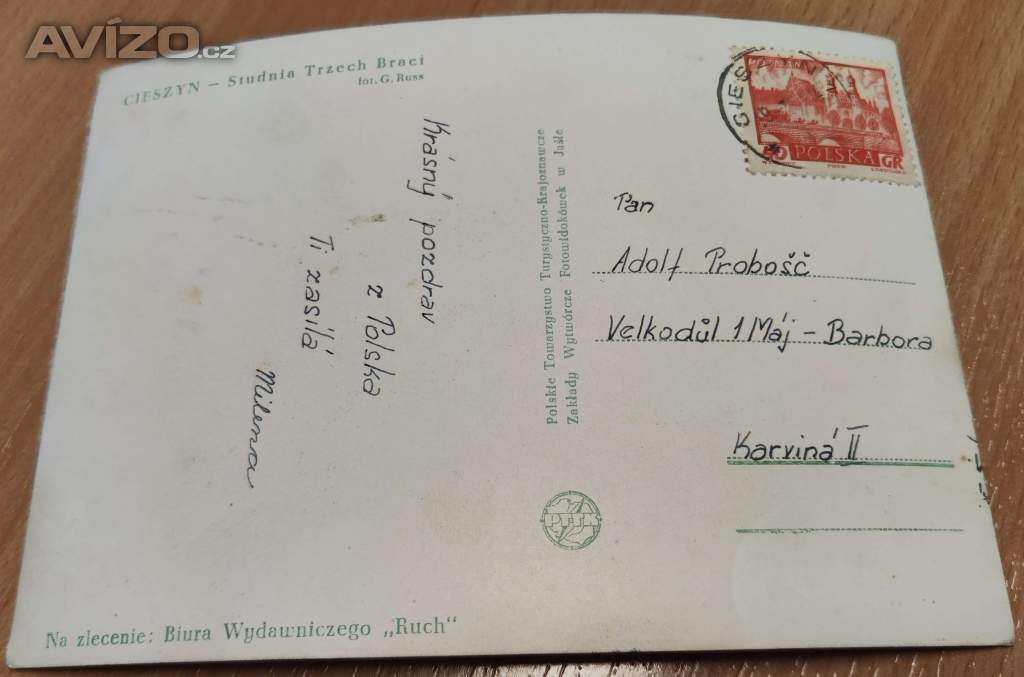 AVÍZO.cz
CIESZYN – Studnia Trzech Braci
fot. G. Russ
Krásný pozdrav
z Polska
Ti zasílá
Milena
Polskie Towarzystwo Turystyczno-Krajoznawcze
Zakłady Wytwórcze Fotowidokówek w Jaśle
PTTK
POZNAŃ
POLSKA GR
CIESZYN
Pan
Adolf Probošč
Velkodůl 1 Máj – Barbora
Karviná II
Na zlecenie: Biura Wydawniczego „Ruch"